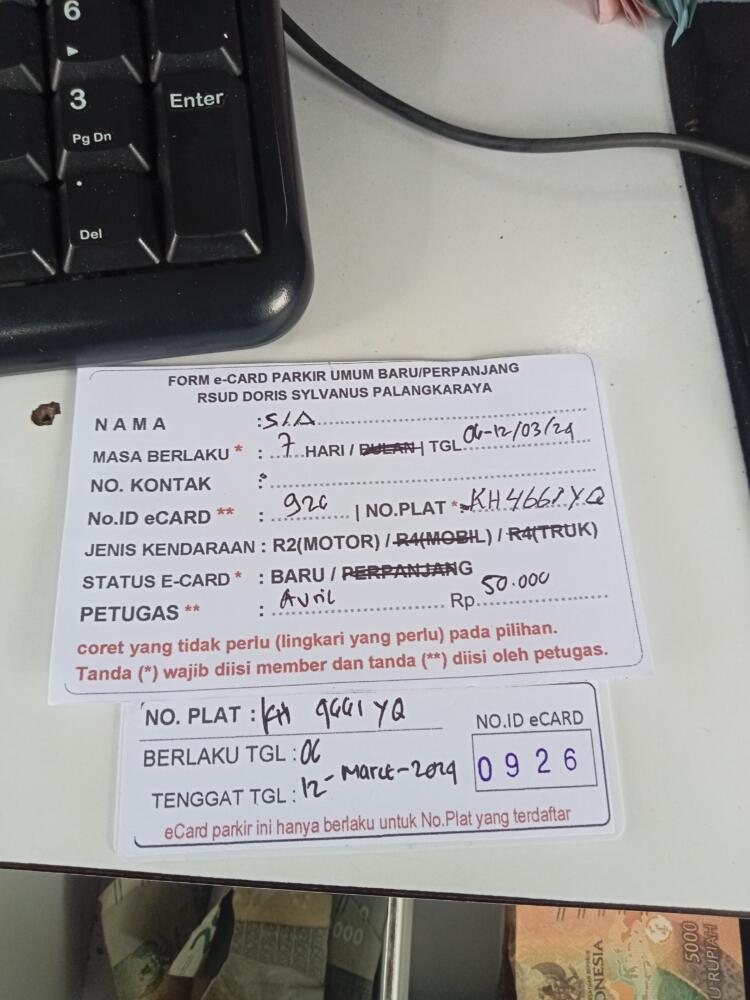 6
3
Pg Dn
Enter
.
Del
FORM e-CARD PARKIR UMUM BARU/PERPANJANG
RSUD DORIS SYLVANUS PALANGKARAYA
NAMA : SIA
MASA BERLAKU * : 7 HARI / BULAN | TGL 06-12/03/24
NO. KONTAK :
No.ID eCARD ** : 926 | NO.PLAT * KH4661YQ
JENIS KENDARAAN : R2(MOTOR) / R4(MOBIL) / R4(TRUK)
STATUS E-CARD * : BARU / PERPANJANG
PETUGAS ** : Avril Rp 50.000
coret yang tidak perlu (lingkari yang perlu) pada pilihan.
Tanda (*) wajib diisi member dan tanda (**) diisi oleh petugas.
NO. PLAT : KH YQ
NO.ID eCARD
BERLAKU TGL : 06
0926
TENGGAT TGL : 12 - Maret - 2024
eCard parkir ini hanya berlaku untuk No.Plat yang terdaftar
000
5000
RUPIAH